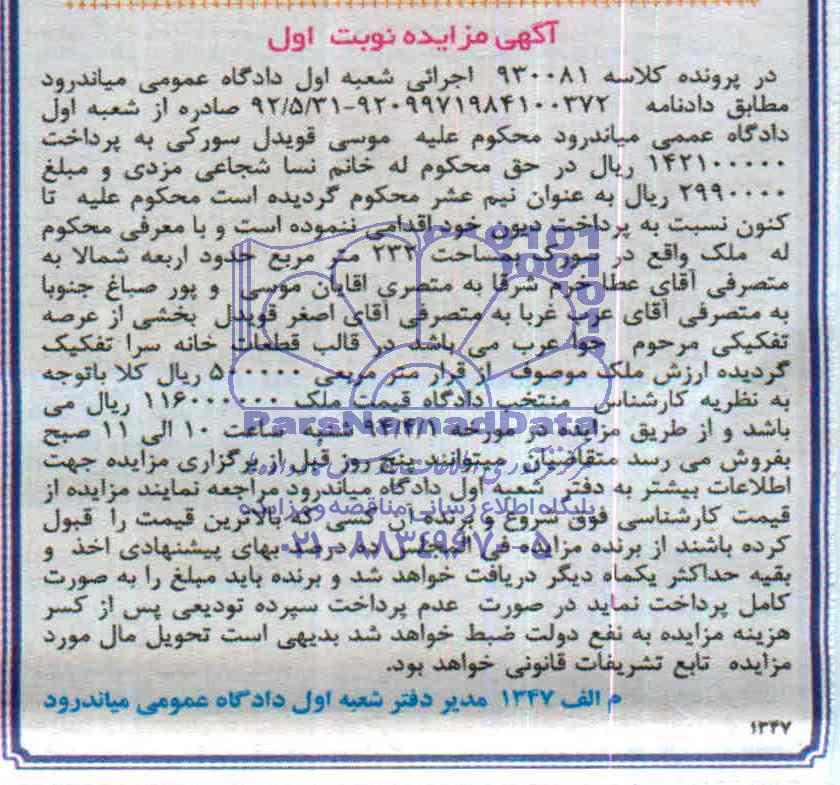 آگهی مزایده نوبت اول
در پرونده کلاسه ۹۳۰۰۸۱ اجرائی شعبه اول دادگاه عمومی میاندرود
مطابق دادنامه ۹۲۰۹۹۷۱۹۸۴۱۰۰۳۷۲-۹۲/۵/۳۱ صادره از شعبه اول
دادگاه عممی میاندرود محکوم علیه موسی قویدل سورکی به پرداخت
۱۴۲۱۰۰۰۰۰ ریال در حق محکوم له خانم نسا شجاعی مزدی و مبلغ
۲۹۹۰۰۰۰ ریال به عنوان نیم عشر محکوم گردیده است محکوم علیه تا
کنون نسبت به پرداخت دیون خود اقدامی ننموده است و با معرفی محکوم
له ملک واقع در سورک بمساحت ۲۳۲ متر مربع حدود اربعه شمالا به
متصرفی آقای عطا خرم شرقا به متصری اقایان موسی و پور صباغ جنوبا
به متصرفی آقای عرب غربا به متصرفی آقای اصغر قویدل بخشی از عرصه
تفکیکی مرحوم عرب می باشد در قالب قطعات خانه سرا تفکیک
گردیده ارزش ملک موصوف از قرار متر مربعی ۵۰۰۰۰۰ ریال کلا باتوجه
به نظریه کارشناس منتخب دادگاه قیمت ملک ۱۱۶۰۰۰۰۰۰ ریال می
باشد و از طریق مزایده در مورخه ۹۴/۴/۱ شنبه ساعت ۱۰ الی ۱۱ صبح
بفروش می رسد متقاضیان میتوانند پنج روز قبل از برگزاری مزایده جهت
اطلاعات بیشتر به دفتر شعبه اول دادگاه میاندرود مراجعه نمایند مزایده از
قیمت کارشناسی فوق شروع و برنده آن کسی که بالاترین قیمت را قبول
کرده باشند از برنده مزایده فی المجلس ده درصد بهای پیشنهادی اخذ و
بقیه حداکثر یکماه دیگر دریافت خواهد شد و برنده باید مبلغ را به صورت
کامل پرداخت نماید در صورت عدم پرداخت سپرده تودیعی پس از کسر
هزینه مزایده به نفع دولت ضبط خواهد شد بدیهی است تحویل مال مورد
مزایده تابع تشریفات قانونی خواهد بود.
م الف ۱۳۴۷ مدیر دفتر شعبه اول دادگاه عمومی میاندرود
۱۳۴۷
ParsNamadData
پایگاه اطلاع رسانی مناقصه و مزایده
۰۲۱-۸۸۳۴۹۶۷۰-۵